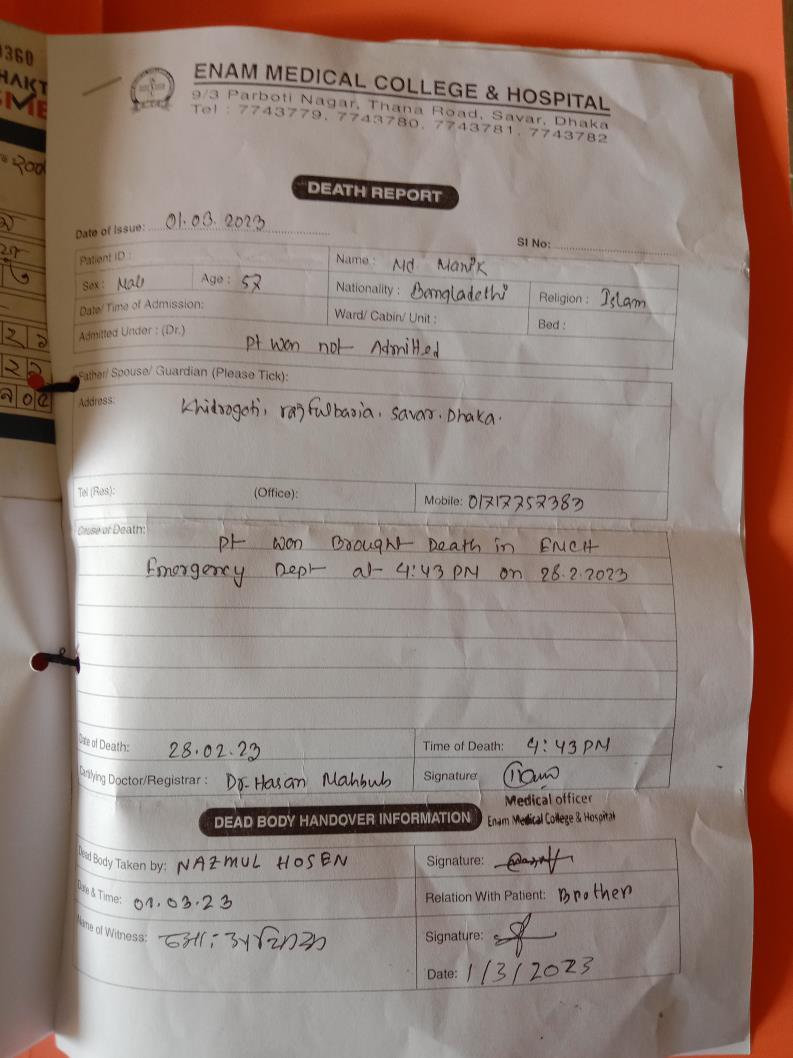 ENAM MEDICAL COLLEGE & HOSPITAL
9/3 Parboti Nagar, Thana Road, Savar, Dhaka
Tel : 7743779, 7743780, 7743781, 7743782
DEATH REPORT
Date of Issue: 01.03.2023 SI No:
Patient ID : Name : Md. Manik
Sex : Male Age : 57 Nationality : Bangladeshi Religion : Islam
Date/ Time of Admission: Ward/ Cabin/ Unit : Bed :
Admitted Under : (Dr.) Pt won not Admitted
Father/ Spouse/ Guardian (Please Tick):
Address: Khidrogoti, rajfulbaria, savar. Dhaka.
Tel (Res): (Office): Mobile: 01717757383
Cause of Death: Pt won Brought Death in EMCH
Emergency Dept at 4:43 PM on 28.2.2023
Date of Death: 28.02.23 Time of Death: 4:43 PM
Certifying Doctor/Registrar : Dr. Hasan Mahbub Signature
Medical officer
Enam Medical College & Hospital
DEAD BODY HANDOVER INFORMATION
Dead Body Taken by: NAZMUL HOSEN Signature:
Date & Time: 01.03.23 Relation With Patient: Brother
Name of Witness: মোঃ Signature:
Date: 1/3/2023
0360
HAKT
SME